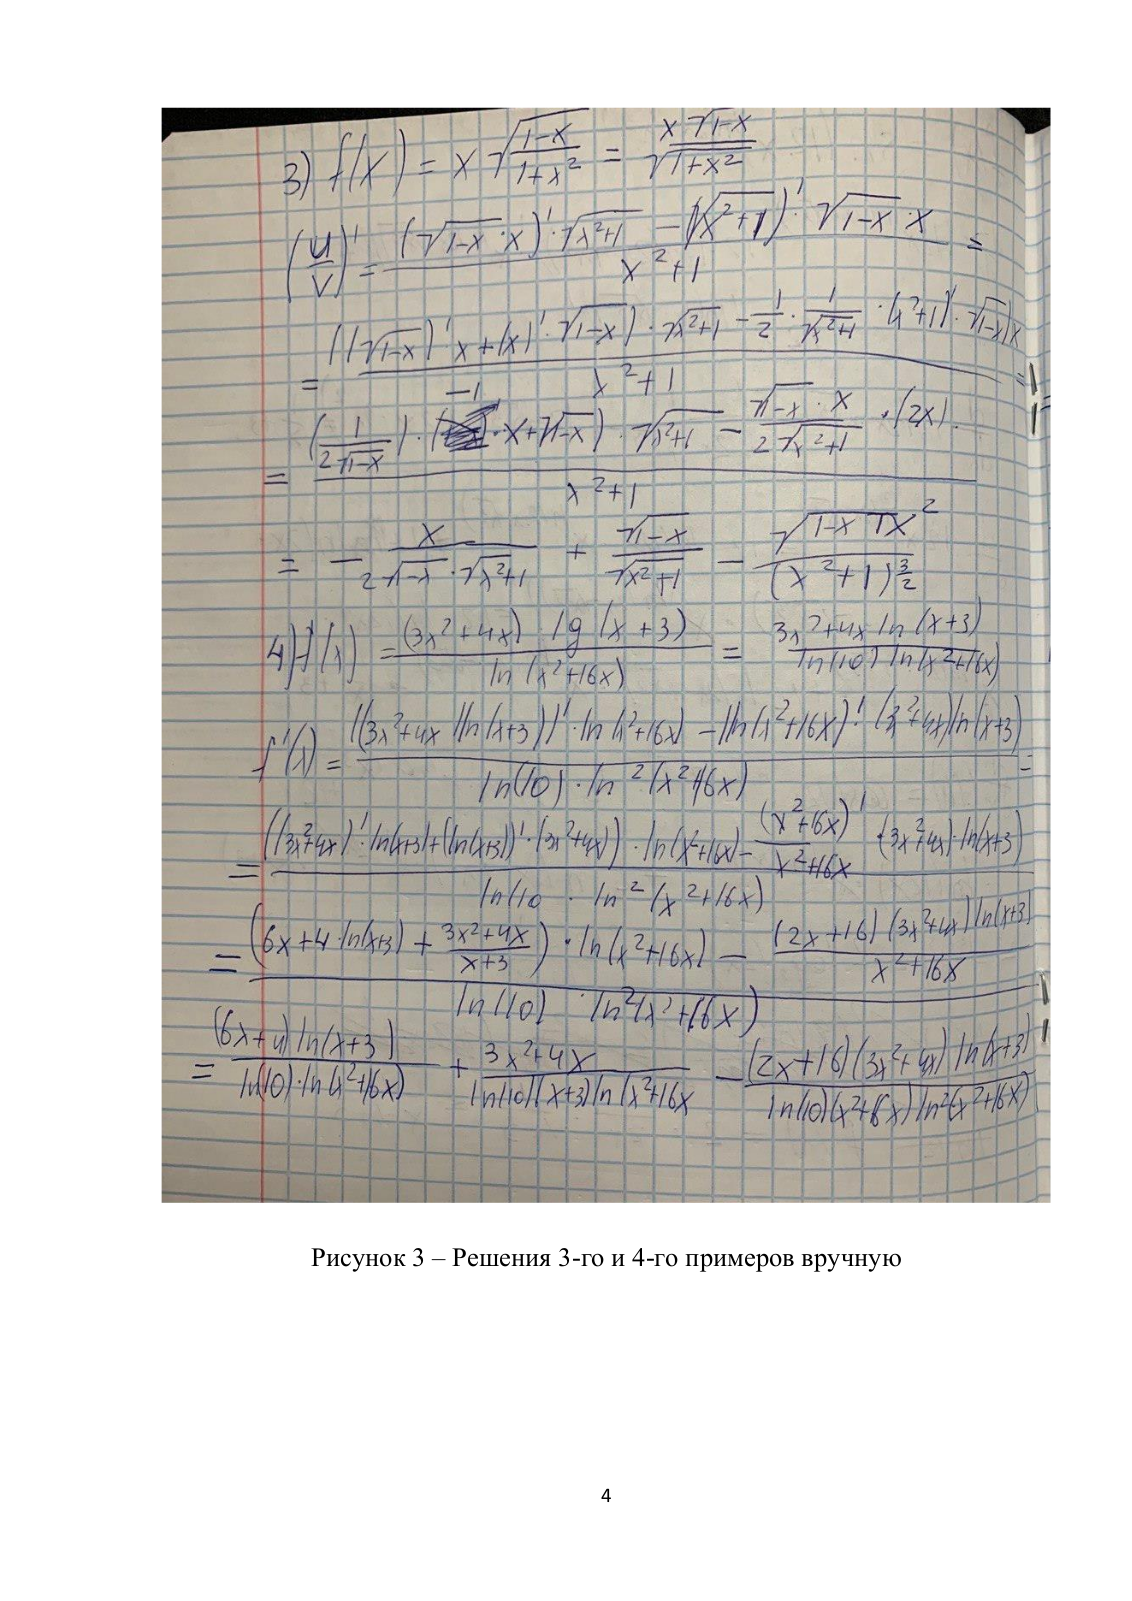 3) f(x) = x √((1-x)/(1+x²)) = (x √(1-x))/√(1+x²)
(u/v)' = ((√(1-x)·x)'·√(x²+1) - (√(x²+1))'·√(1-x)·x)/(x²+1) =
= (((√(1-x))'x+(x)'·√(1-x))·√(x²+1) - 1/2·1/√(x²+1)·(x²+1)'·√(1-x)x)/(x²+1) =
= ((1/(2√(1-x)))·(-1)·x+√(1-x))·√(x²+1) - (√(1-x)·x)/(2√(x²+1))·(2x))/(x²+1)
= - x/(2√(1-x)·√(x²+1)) + √(1-x)/√(x²+1) - (√(1-x) x²)/(x²+1)^(3/2)
4) f(x) = ((3x²+4x) lg(x+3))/ln(x²+16x) = (3x²+4x ln(x+3))/(ln(10) ln(x²+16x))
f'(x) = (((3x²+4x)(ln(x+3))'·ln(x²+16x) - (ln(x²+16x))'·(3x²+4x)ln(x+3))/(ln(10)·ln²(x²+16x)) =
= (((3x²+4x)'·ln(x+3)+(ln(x+3))'·(3x²+4x))·ln(x²+16x) - (x²+16x)'/(x²+16x)·(3x²+4x)·ln(x+3))/(ln(10·ln²(x²+16x))
= ((6x+4·ln(x+3) + (3x²+4x)/(x+3))·ln(x²+16x) - ((2x+16)(3x²+4x)ln(x+3))/(x²+16x))/(ln(10)·ln²(x²+16x))
= ((6x+4)ln(x+3))/(ln(10)·ln(x²+16x)) + (3x²+4x)/(ln(10)(x+3)ln(x²+16x) - ((2x+16)(3x²+4x)ln(x+3))/(ln(10)(x²+16x)ln²(x²+16x))
Рисунок 3 – Решения 3-го и 4-го примеров вручную
4